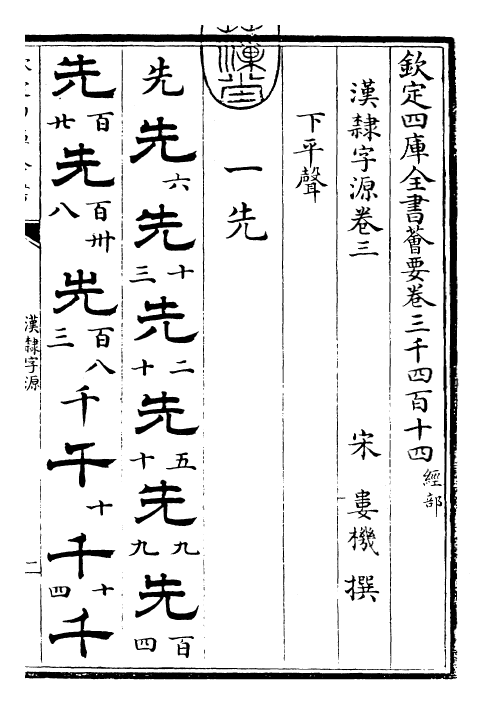 欽定四庫全書薈要卷三千四百十四 經部
漢隸字源卷三
宋 婁機 撰
下平聲
一先
先 先六 先十三 先二十 先五十 先九九 先百四
先百廿 先百卅八 先百八三 千 千十 千十四 千
漢隸字源
二